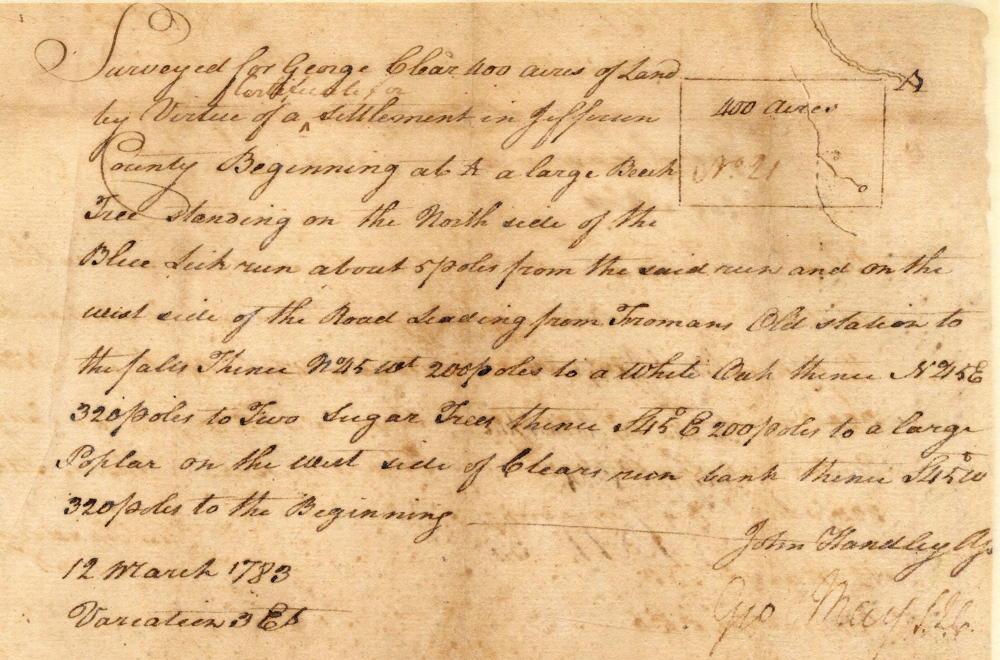 Surveyed for George Clear 400 acres of Land
Certificate for
by Virtue of a ^ settlement in Jefferson
County Beginning at A a large Beech
Tree standing on the North side of the
Blue Lick run about 5 poles from the said run and on the
west side of the Road Leading from Fromans Old station to
the falls Thence N 45 Wt 200 poles to a White Oak thence N 45 E
320 poles to Two Sugar Trees thence S 45° E 200 poles to a large
Poplar on the west side of Clears run bank thence S 45° W
320 poles to the Beginning
John Handley
12 March 1783
Variation 3 Et
Geo May
A
400 acres
No. 21